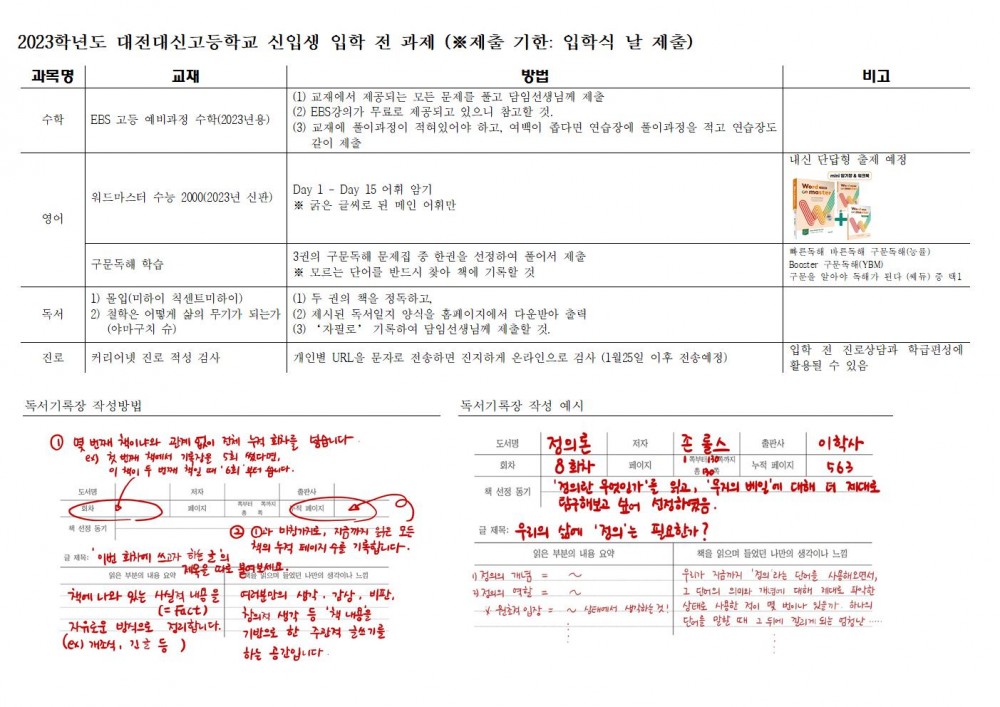 2023학년도 대전대신고등학교 신입생 입학 전 과제 (※제출 기한: 입학식 날 제출)
과목명 교재 방법 비고
수학 EBS 고등 예비과정 수학(2023년용)
(1) 교재에서 제공되는 모든 문제를 풀고 담임선생님께 제출
(2) EBS강의가 무료로 제공되고 있으니 참고할 것.
(3) 교재에 풀이과정이 적혀있어야 하고, 여백이 좁다면 연습장에 풀이과정을 적고 연습장도
같이 제출
영어
워드마스터 수능 2000(2023년 신판)
Day 1 - Day 15 어휘 암기
※ 굵은 글씨로 된 메인 어휘만
내신 단답형 출제 예정
mini 암기장 & 워크북
Word master
구문독해 학습
3권의 구문독해 문제집 중 한권을 선정하여 풀어서 제출
※ 모르는 단어를 반드시 찾아 책에 기록할 것
빠른독해 바른독해 구문독해(능률)
Booster 구문독해(YBM)
구문을 알아야 독해가 된다 (쎄듀) 중 택1
독서
1) 몰입(미하이 칙센트미하이)
2) 철학은 어떻게 삶의 무기가 되는가
(야마구치 슈)
(1) 두 권의 책을 정독하고,
(2) 제시된 독서일지 양식을 홈페이지에서 다운받아 출력
(3) ‘자필로’ 기록하여 담임선생님께 제출할 것.
진로 커리어넷 진로 적성 검사
개인별 URL을 문자로 전송하면 진지하게 온라인으로 검사 (1월25일 이후 전송예정)
입학 전 진로상담과 학급편성에
활용될 수 있음
독서기록장 작성방법
① 몇 번째 책이냐와 관계 없이 전체 누적 회차를 넣습니다
ex) 첫 번째 책에서 기록장을 5회 썼다면,
이 책이 두 번째 책일 때 '6회'부터 씁니다.
도서명 저자 출판사
회차 페이지 쪽부터 쪽까지 총 쪽 누적 페이지
책 선정 동기
② ①과 마찬가지로, 지금까지 읽은 모든
책의 누적 페이지 수를 기록합니다.
글 제목: '이번 회차에 쓰고자 하는 글'의
제목을 따로 붙여보세요.
읽은 부분의 내용 요약 책을 읽으며 들었던 나만의 생각이나 느낌
책에 나와 있는 사실적 내용을
(=Fact)
자유로운 방식으로 정리합니다.
(ex) 개조식, 긴 글 등 )
여러분만의 생각, 감상, 비판,
창의적 생각 등 '책 내용을
기반으로 한 주관적 글쓰기를
하는 공간입니다.
독서기록장 작성 예시
도서명 정의론 저자 존 롤스 출판사 이학사
회차 8회차 페이지 1쪽부터 130쪽까지 총 130쪽 누적 페이지 563
책 선정 동기 '정의란 무엇인가'를 읽고, '무지의 베일'에 대해 더 제대로
탐구해보고 싶어 선정하였음.
글 제목: 우리의 삶에 '정의'는 필요한가?
읽은 부분의 내용 요약 책을 읽으며 들었던 나만의 생각이나 느낌
1) 정의의 개념 = ~
2) 정의의 역할 = ~
* 원초적 입장 = ~ 상태에서 생각하는 것!
우리가 지금까지 '정의'라는 단어를 사용해오면서,
그 단어의 의미와 개념에 대해 제대로 파악한
상태로 사용한 적이 몇 번이나 있을까. 하나의
단어를 말할 때 그 뒤에 깔리게 되는 엄청난 .....